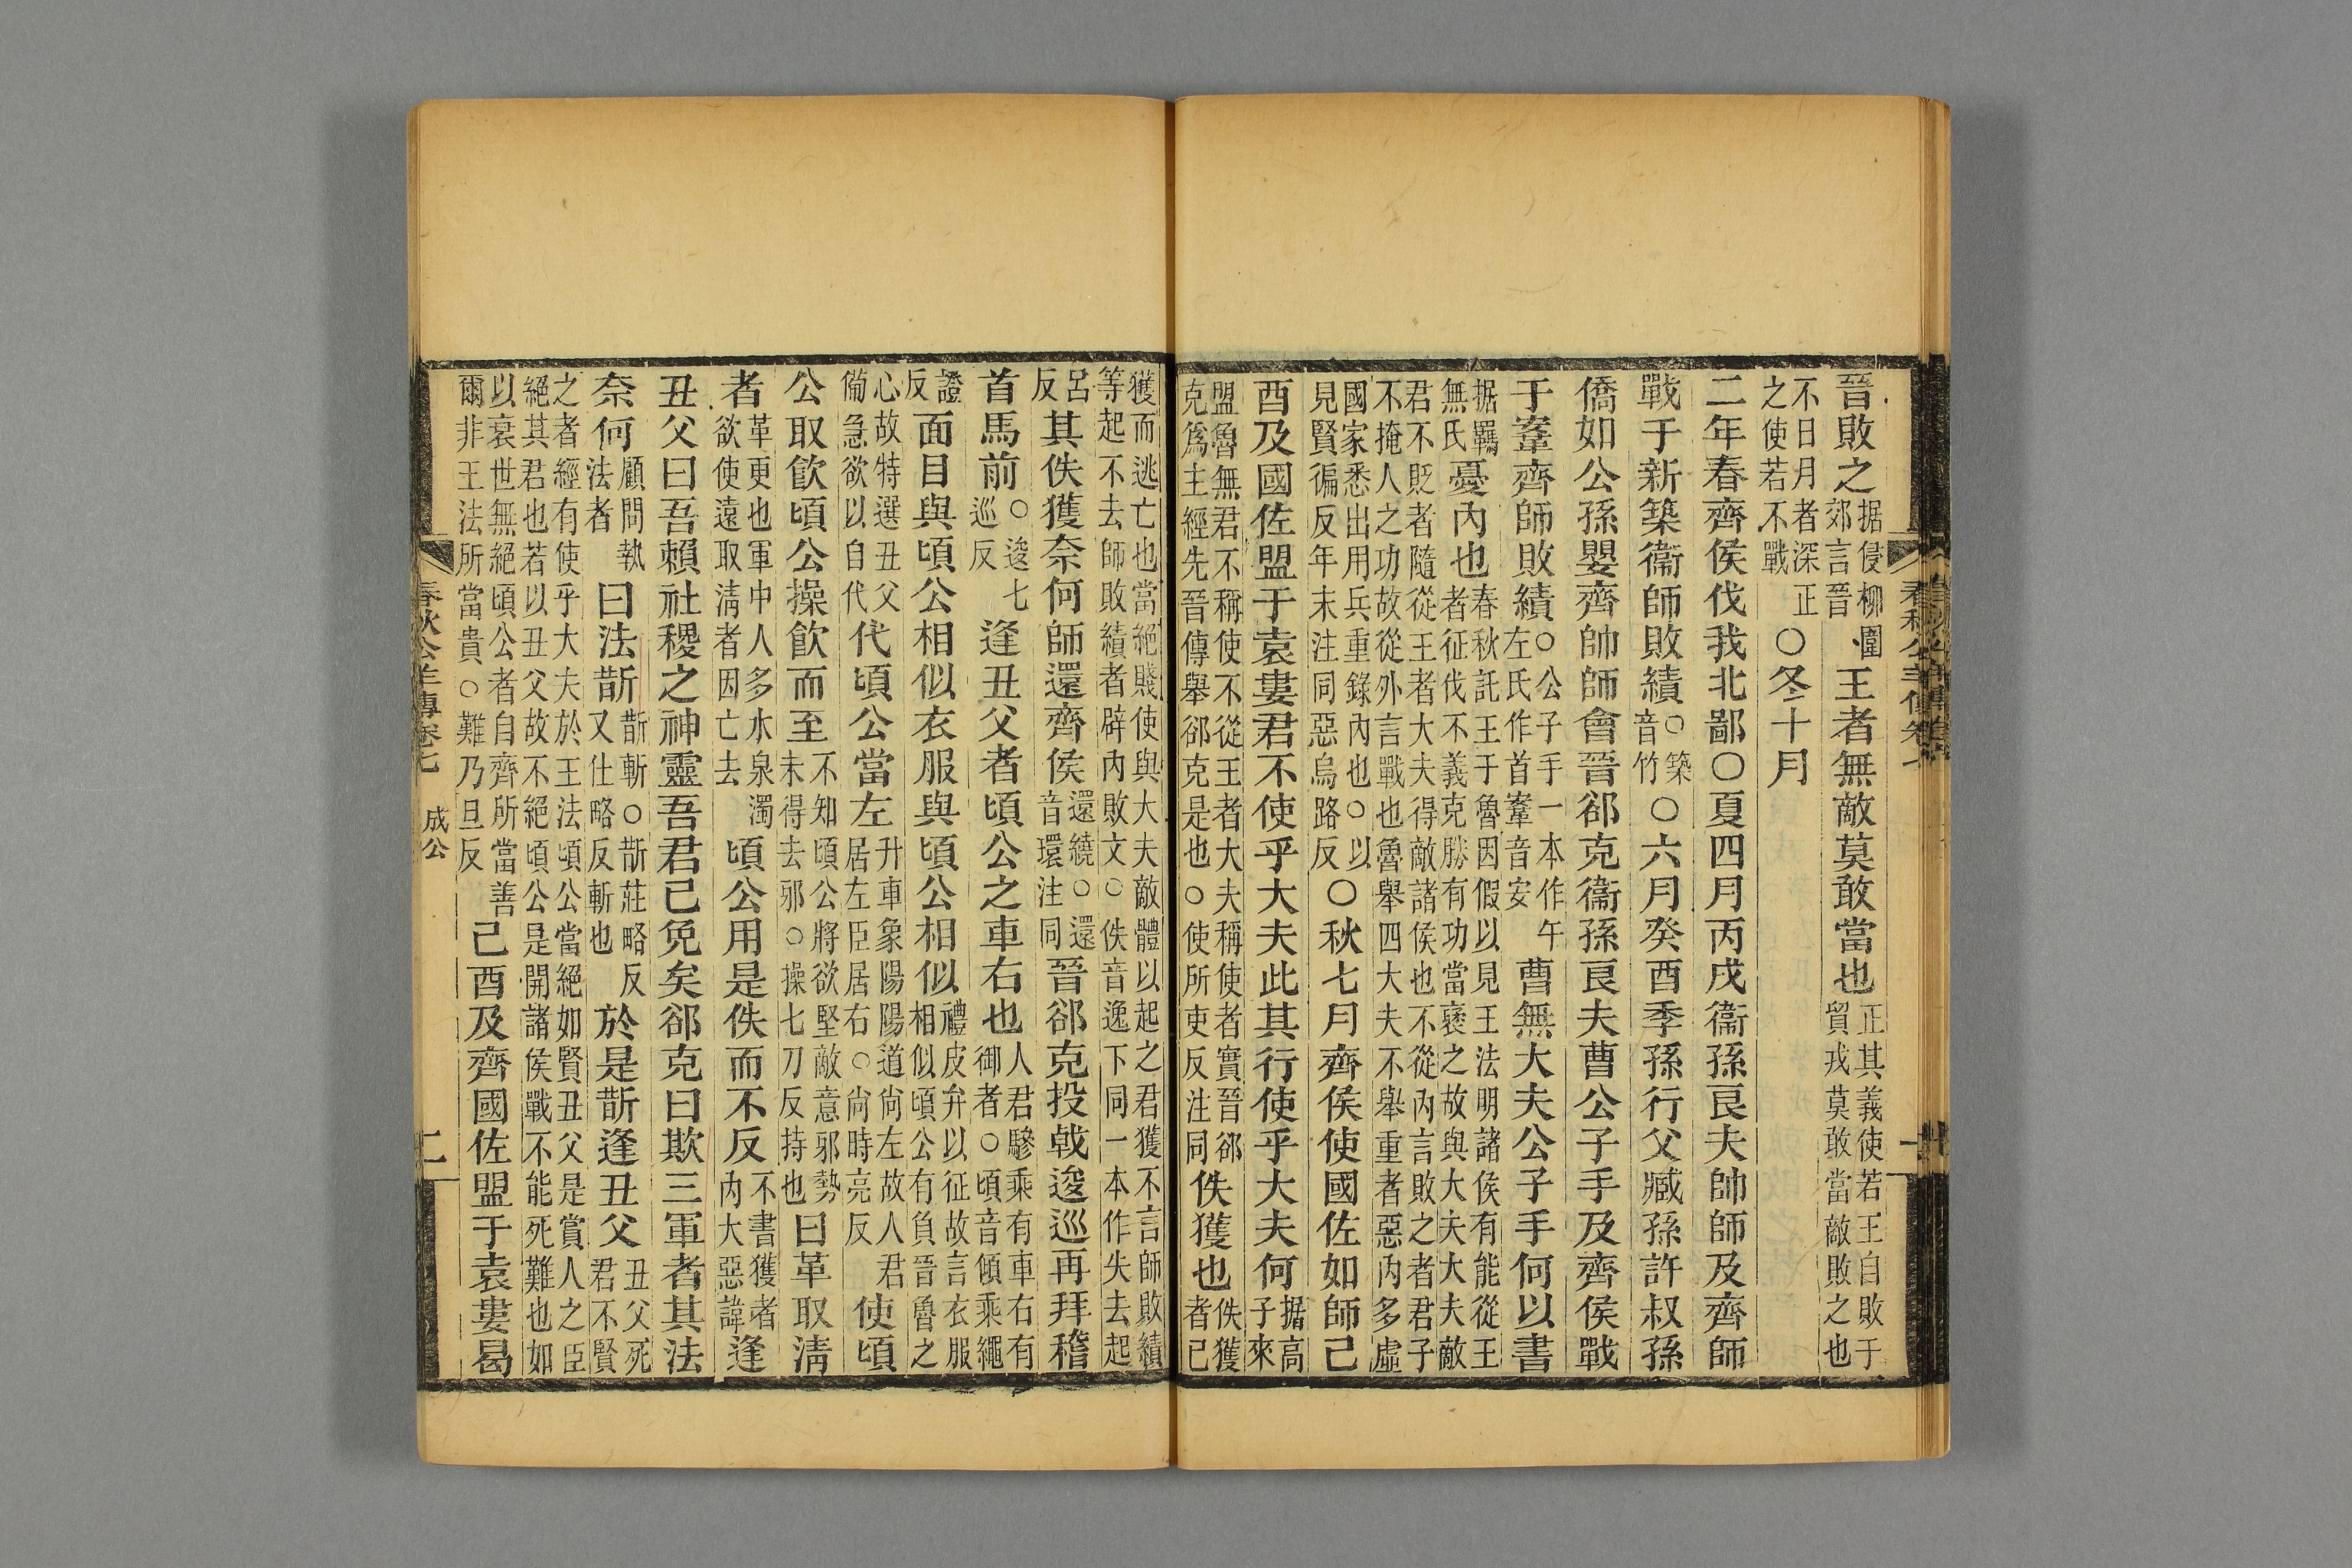 晉敗之据侵柳圍郊言晉王者無敵莫敢當也正其義使若王自敗于貿戎莫敢當敵敗之也
不日月者深正之使若不戰〇冬十月
二年春齊侯伐我北鄙〇夏四月丙戌衞孫良夫帥師及齊師
戰于新築衞師敗績〇築音竹〇六月癸酉季孫行父臧孫許叔孫
僑如公孫嬰齊帥師會晉郤克衞孫良夫曹公子手及齊侯戰
于鞌齊師敗績〇公子手一本作午左氏作首鞌音安曹無大夫公子手何以書
据羈無氏憂內也春秋託王于魯因假以見王法明諸侯有能從王者征伐不義克勝有功當襃之故與大夫大夫敵
君不貶者隨從王者大夫得敵諸侯也不從內言敗之者君子不掩人之功故從外言戰也魯舉四大夫不舉重者惡內多虛
國家悉出用兵重錄內也〇以見賢徧反年末注同惡烏路反〇秋七月齊侯使國佐如師己
酉及國佐盟于袁婁君不使乎大夫此其行使乎大夫何据高子來
盟魯無君不稱使不從王者大夫稱使者實晉郤克爲主經先晉傳舉郤克是也〇使所吏反注同佚獲也佚獲者已
獲而逃亡也當絕賤使與大夫敵體以起之君獲不言師敗績等起不去師敗績者辟內敗文〇佚音逸下同一本作失去起
呂反其佚獲奈何師還齊侯還繞〇還音環注同晉郤克投戟逡巡再拜稽
首馬前〇逡七巡反逢丑父者頃公之車右也人君驂乘有車右有御者〇頃音傾乘繩
證反面目與頃公相似衣服與頃公相似禮皮弁以征故言衣服相似頃公有負晉魯之
心故特選丑父備急欲以自代代頃公當左升車象陽陽道尙左故人君居左臣居右〇尙時亮反使頃
公取飮頃公操飮而至不知頃公將欲堅敵意邪勢未得去邪〇操七刀反持也曰革取淸
者革更也軍中人多水泉濁欲使遠取淸者因亡去頃公用是佚而不反不書獲者內大惡諱逢
丑父曰吾賴社稷之神靈吾君已免矣郤克曰欺三軍者其法
奈何顧問執法者曰法斮斮斬〇斮莊略反又仕略反斬也於是斮逢丑父丑父死君不賢
之者經有使乎大夫於王法頃公當絕如賢丑父是賞人之臣絕其君也若以丑父故不絕頃公是開諸侯戰不能死難也如
以衰世無絕頃公者自齊所當善爾非王法所當貴〇難乃旦反己酉及齊國佐盟于袁婁曷
春秋公羊傳卷七 成公 二